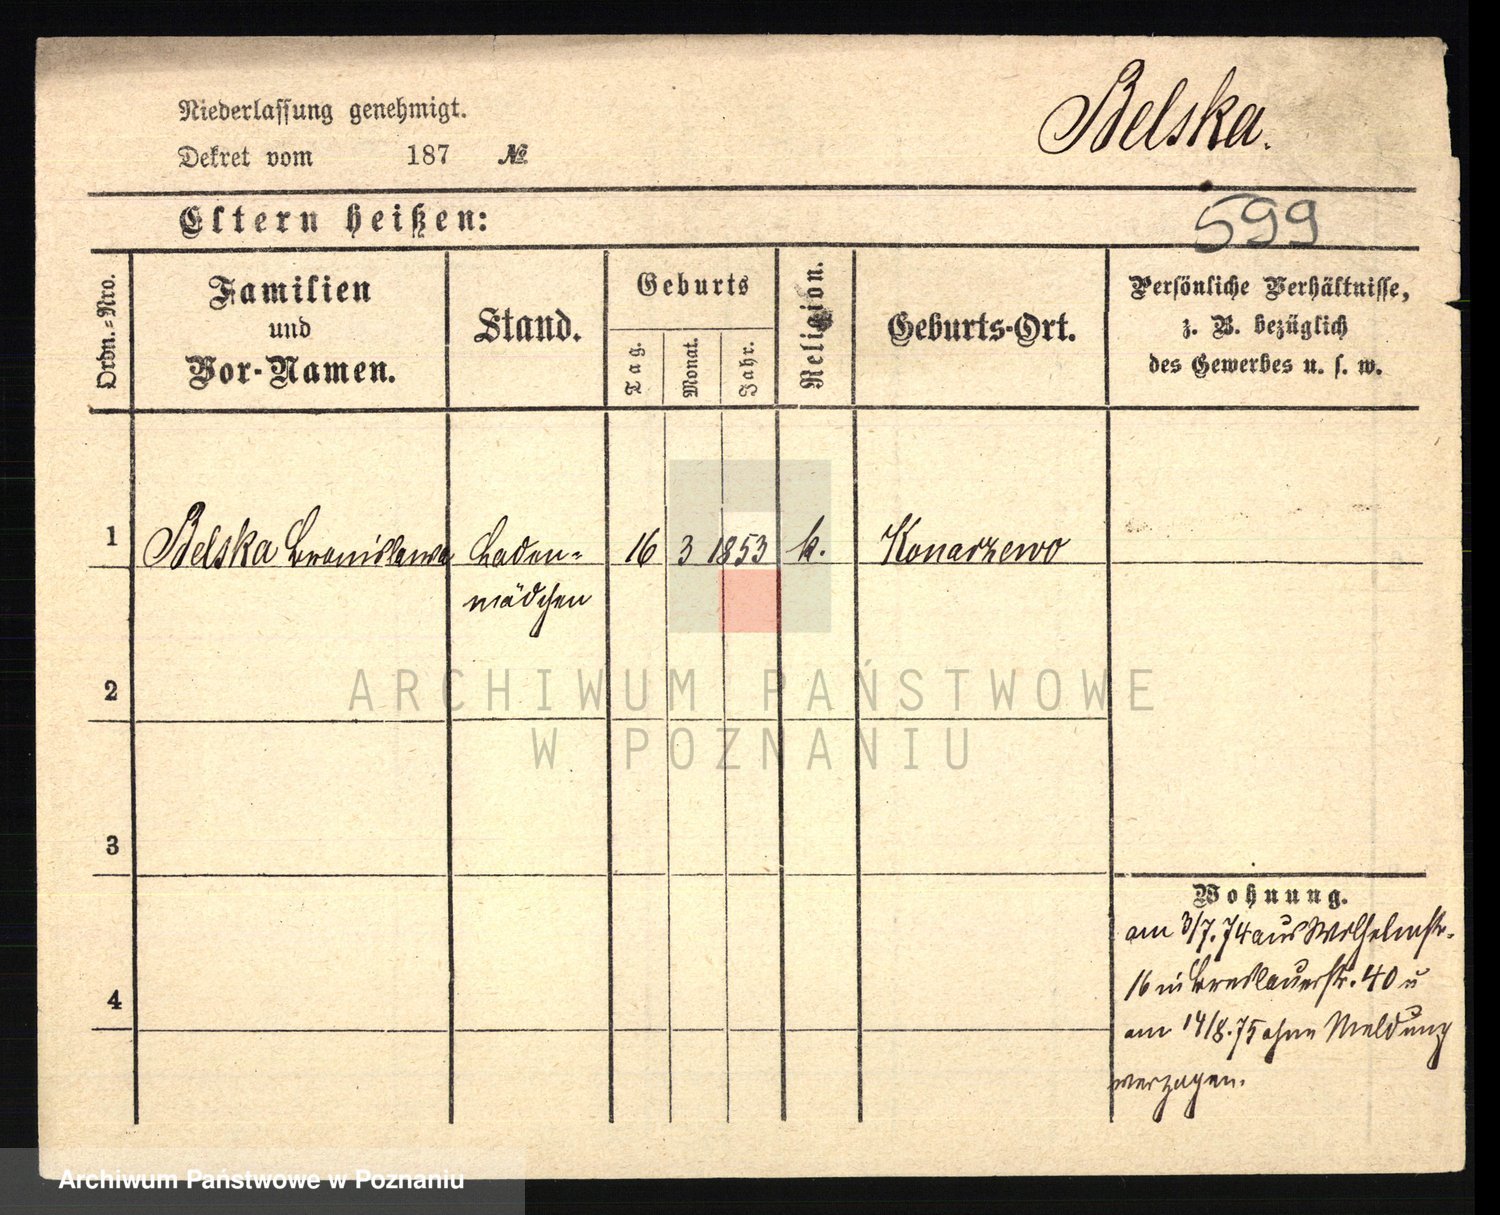 Niederlassung genehmigt.
Belska.
Dekret vom 187 №
Eltern heißen:
599
Ordn.-Nro.
Familien
und
Vor-Namen.
Stand.
Geburts
Tag.
Monat.
Jahr.
Religion.
Geburts-Ort.
Persönliche Verhältnisse,
z. B. bezüglich
des Gewerbes u. s. w.
1 Belska Bronislawa Laden= 16 3 1853 k. Konarzewo
mädchen
2
ARCHIWUM PAŃSTWOWE
W POZNANIU
3
Wohnung.
am 3/7. 74 aus Wilhelmstr.
16 in Breslauerstr. 40 u
4
am 14/8. 75 ohne Meldung
verzogen.
Archiwum Państwowe w Poznaniu